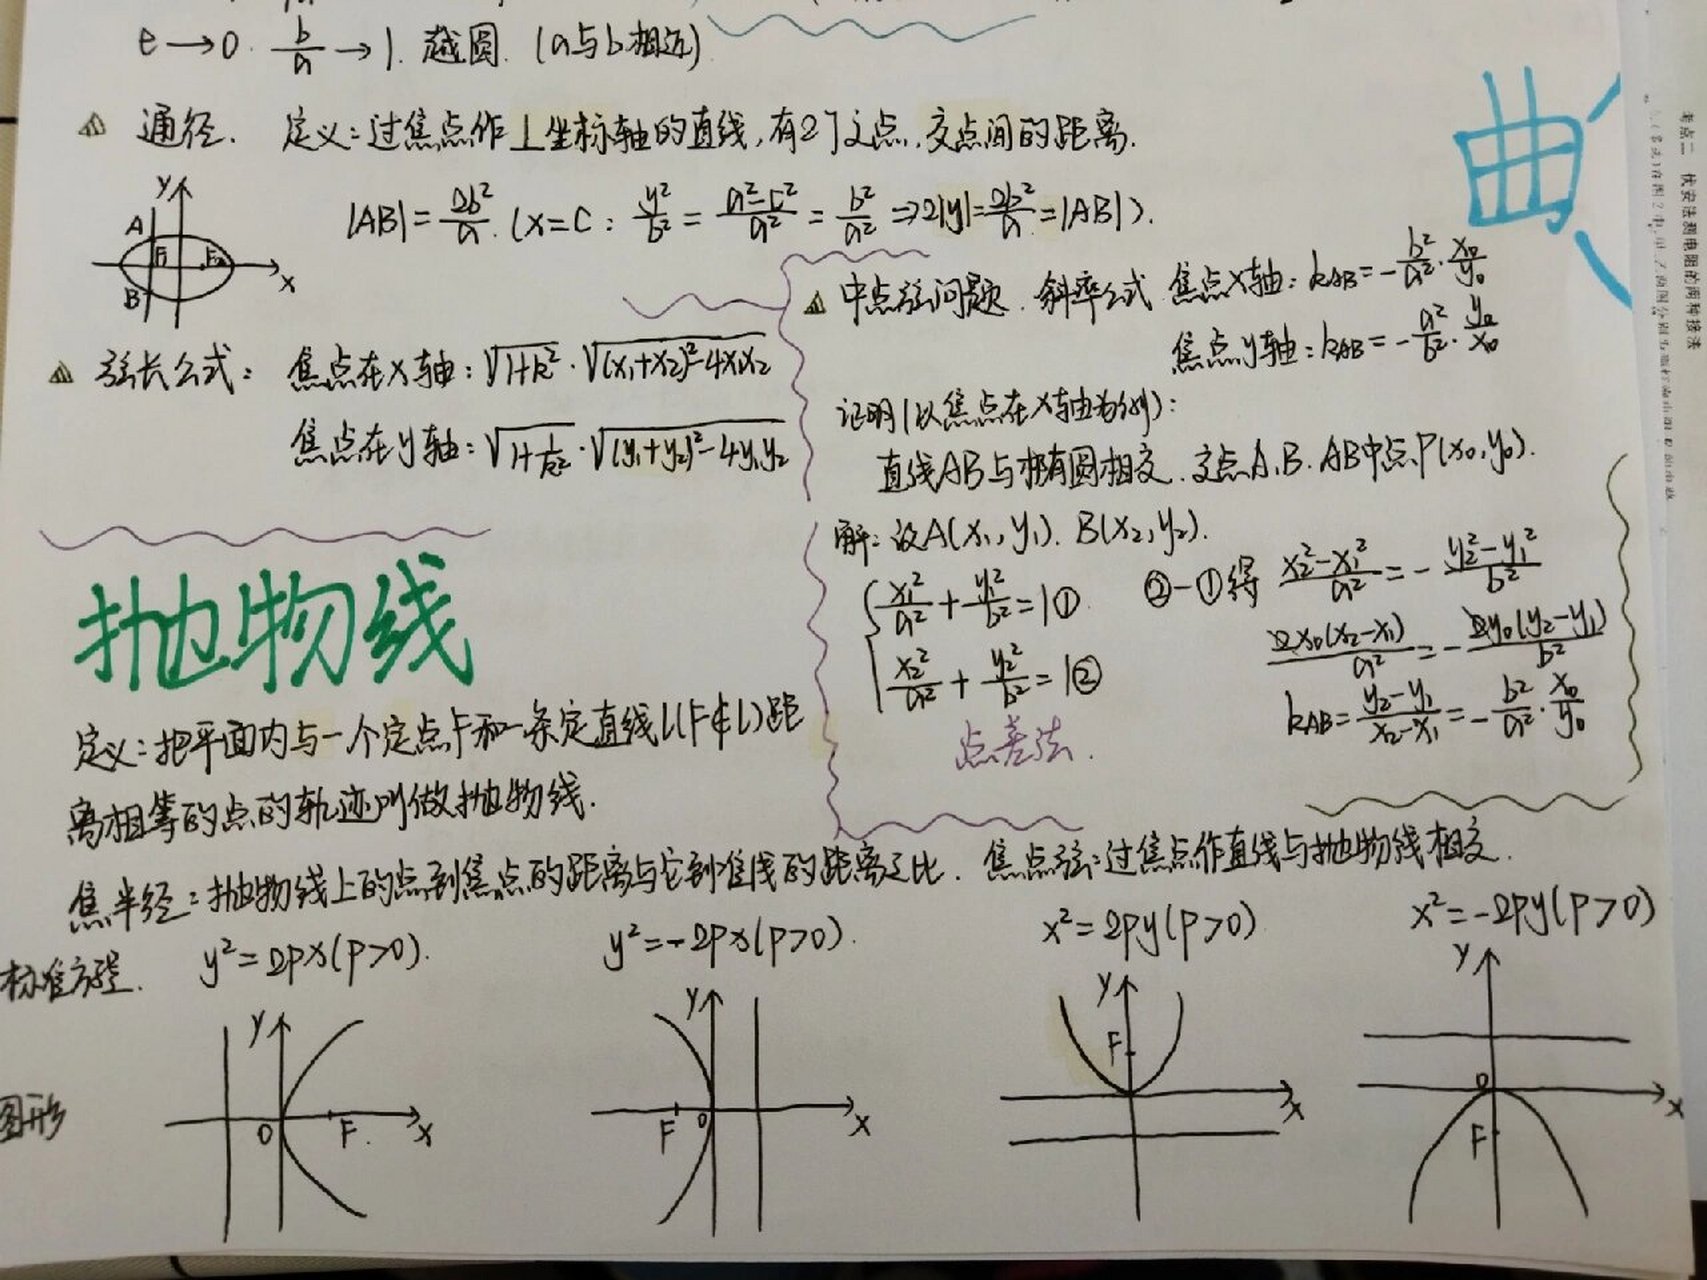 e→0. b/a→1. 越圆. (a与b相近)
通径. 定义:过焦点作⊥坐标轴的直线,有2个交点,交点间的距离.
|AB|=2b²/a. (x=c: y²/b²=(a²-c²)/a²=b²/a²⇒2|y|=2b²/a=|AB|).
y A F₁ F₂ B x
弦长公式: 焦点在x轴:√(1+k²)·√((x₁+x₂)²-4x₁x₂)
焦点在y轴:√(1+1/k²)·√((y₁+y₂)²-4y₁y₂)
曲
中点弦问题. 斜率公式 焦点x轴:kAB=-b²/a²·x₀/y₀
焦点y轴:kAB=-a²/b²·y₀/x₀
证明(以焦点在x轴为例):
直线AB与椭圆相交.交点A.B.AB中点P(x₀,y₀).
解:设A(x₁,y₁). B(x₂,y₂).
x₁²/a²+y₁²/b²=1①
x₂²/a²+y₂²/b²=1②
点差法.
②-①得 (x₂²-x₁²)/a²=-(y₂²-y₁²)/b²
2x₀(x₂-x₁)/a²=-2y₀(y₂-y₁)/b²
kAB=(y₂-y₁)/(x₂-x₁)=-b²/a²·x₀/y₀
抛物线
定义:把平面内与一个定点F和一条定直线l(F∉l)距
离相等的点的轨迹叫做抛物线.
焦半径:抛物线上的点到焦点的距离与它到准线的距离之比. 焦点弦:过焦点作直线与抛物线相交.
标准方程. y²=2px(p>0). y²=-2px(p>0). x²=2py(p>0) x²=-2py(p>0)
图形
y O F. x
y F O x
y F x
y O F x
考点二 伏安法测电阻的两种接法